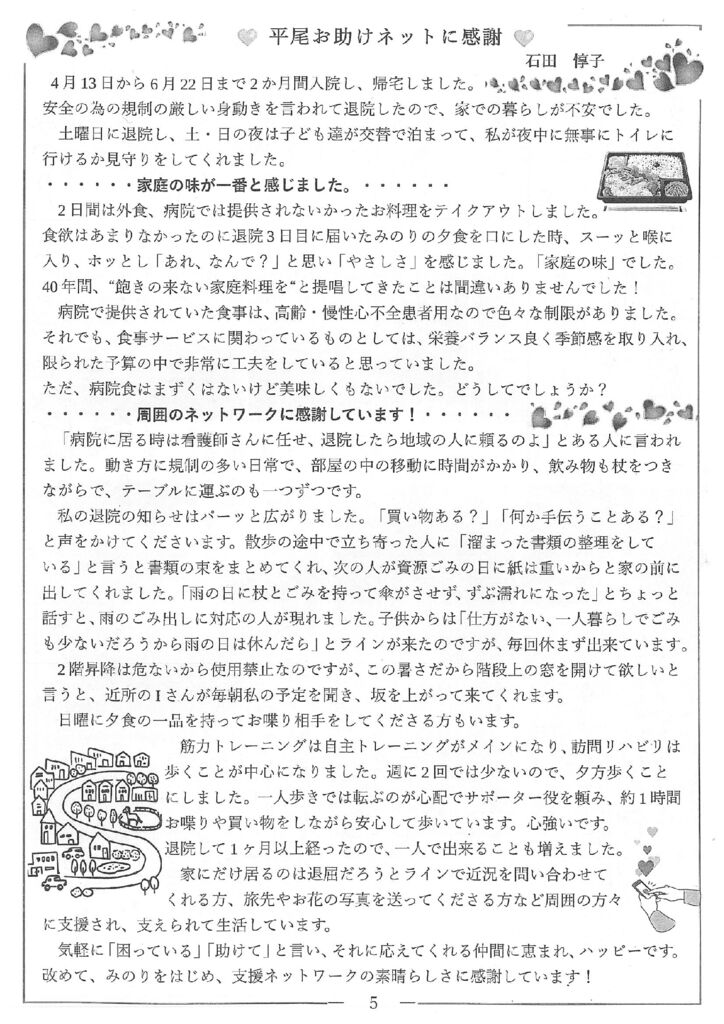 平尾お助けネットに感謝
石田 惇子
4月13日から6月22日まで2か月間入院し、帰宅しました。
安全の為の規制の厳しい身動きを言われて退院したので、家での暮らしが不安でした。
土曜日に退院し、土・日の夜は子ども達が交替で泊まって、私が夜中に無事にトイレに
行けるか見守りをしてくれました。
・・・・・・家庭の味が一番と感じました。・・・・・・
2日間は外食、病院では提供されないかったお料理をテイクアウトしました。
食欲はあまりなかったのに退院3日目に届いたみのりの夕食を口にした時、スーッと喉に
入り、ホッとし「あれ、なんで？」と思い「やさしさ」を感じました。「家庭の味」でした。
40年間、“飽きの来ない家庭料理を“と提唱してきたことは間違いありませんでした！
病院で提供されていた食事は、高齢・慢性心不全患者用なので色々な制限がありました。
それでも、食事サービスに関わっているものとしては、栄養バランス良く季節感を取り入れ、
限られた予算の中で非常に工夫をしていると思っていました。
ただ、病院食はまずくはないけど美味しくもないでした。どうしてでしょうか？
・・・・・・周囲のネットワークに感謝しています！・・・・・・
「病院に居る時は看護師さんに任せ、退院したら地域の人に頼るのよ」とある人に言われ
ました。動き方に規制の多い日常で、部屋の中の移動に時間がかかり、飲み物も杖をつき
ながらで、テーブルに運ぶのも一つずつです。
私の退院の知らせはパーッと広がりました。「買い物ある？」「何か手伝うことある？」
と声をかけてくださいます。散歩の途中で立ち寄った人に「溜まった書類の整理をして
いる」と言うと書類の束をまとめてくれ、次の人が資源ごみの日に紙は重いからと家の前に
出してくれました。「雨の日に杖とごみを持って傘がさせず、ずぶ濡れになった」とちょっと
話すと、雨のごみ出しに対応の人が現れました。子供からは「仕方がない、一人暮らしでごみ
も少ないだろうから雨の日は休んだら」とラインが来たのですが、毎回休まず出来ています。
2階昇降は危ないから使用禁止なのですが、この暑さだから階段上の窓を開けて欲しいと
言うと、近所のIさんが毎朝私の予定を聞き、坂を上がって来てくれます。
日曜に夕食の一品を持ってお喋り相手をしてくださる方もいます。
筋力トレーニングは自主トレーニングがメインになり、訪問リハビリは
歩くことが中心になりました。週に2回では少ないので、夕方歩くこと
にしました。一人歩きでは転ぶのが心配でサポーター役を頼み、約1時間
お喋りや買い物をしながら安心して歩いています。心強いです。
退院して1ヶ月以上経ったので、一人で出来ることも増えました。
家にだけ居るのは退屈だろうとラインで近況を問い合わせて
くれる方、旅先やお花の写真を送ってくださる方など周囲の方々
に支援され、支えられて生活しています。
気軽に「困っている」「助けて」と言い、それに応えてくれる仲間に恵まれ、ハッピーです。
改めて、みのりをはじめ、支援ネットワークの素晴らしさに感謝しています！
5